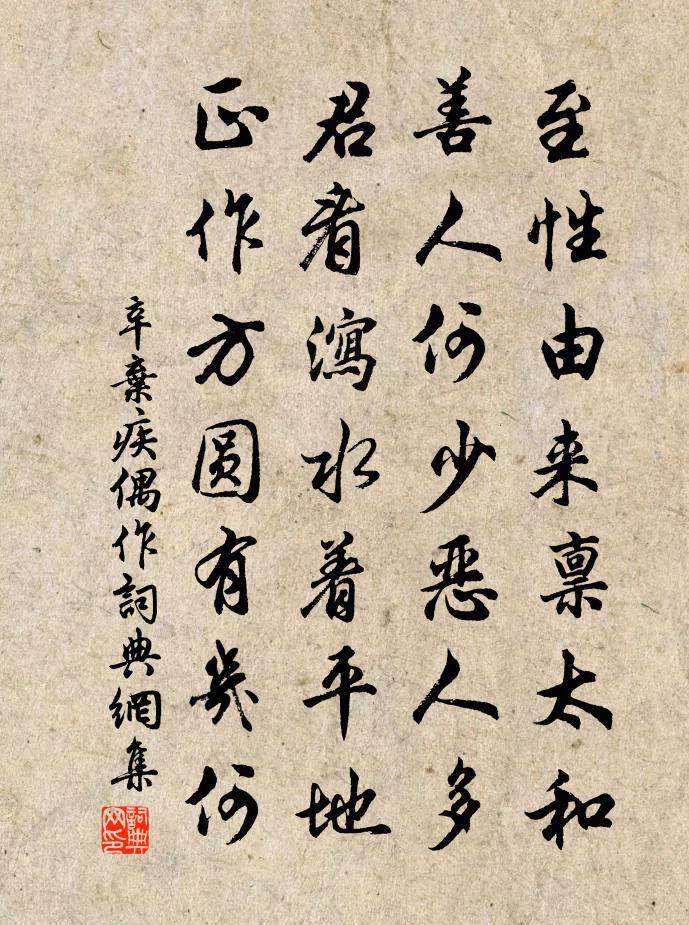 至性由来禀太和
善人何少恶人多
君看瀉水着平地
正作方圆有幾何
辛棄疾偶作詞典網集
詞典网印